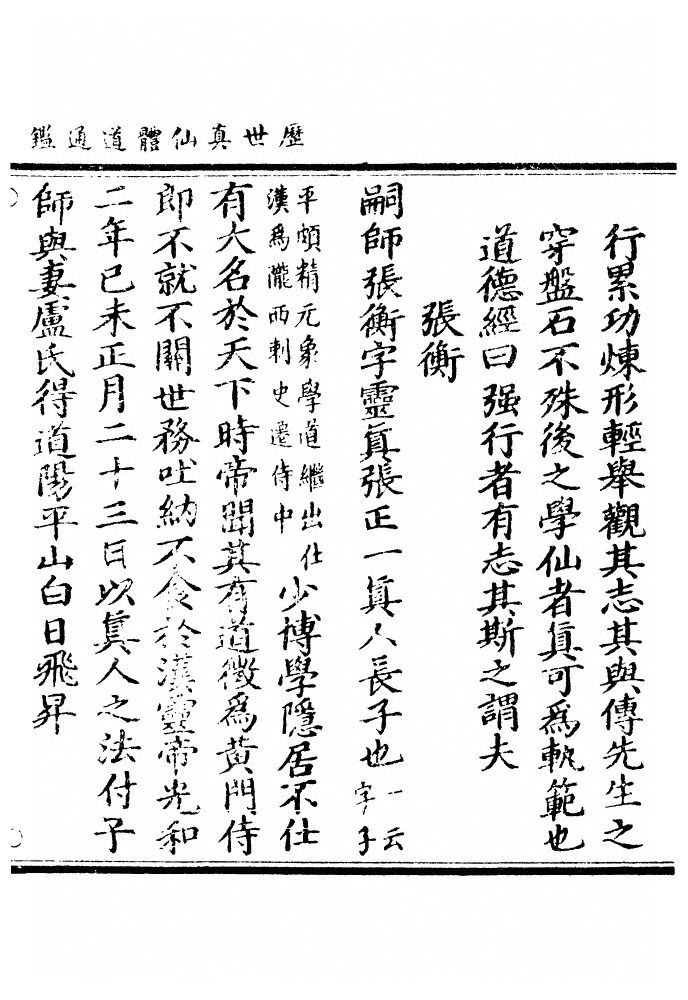 歷世真仙體道通鑑
行累功煉形輕舉觀其志其與傳先生之
穿盤石不殊後之學仙者眞可爲軌範也
道德經曰强行者有志其斯之謂夫
張衡
嗣師張衡字靈眞張正一眞人長子也一云字子
平頗精元象學道繼出仕漢爲隴西刺史遷侍中少博學隱居不仕
有大名於天下時帝聞其有道徵爲黄門侍
郎不就不關世務吐納不食於漢靈帝光和
二年已未正月二十三日以眞人之法付子
師與妻盧氏得道陽平山白日飛昇